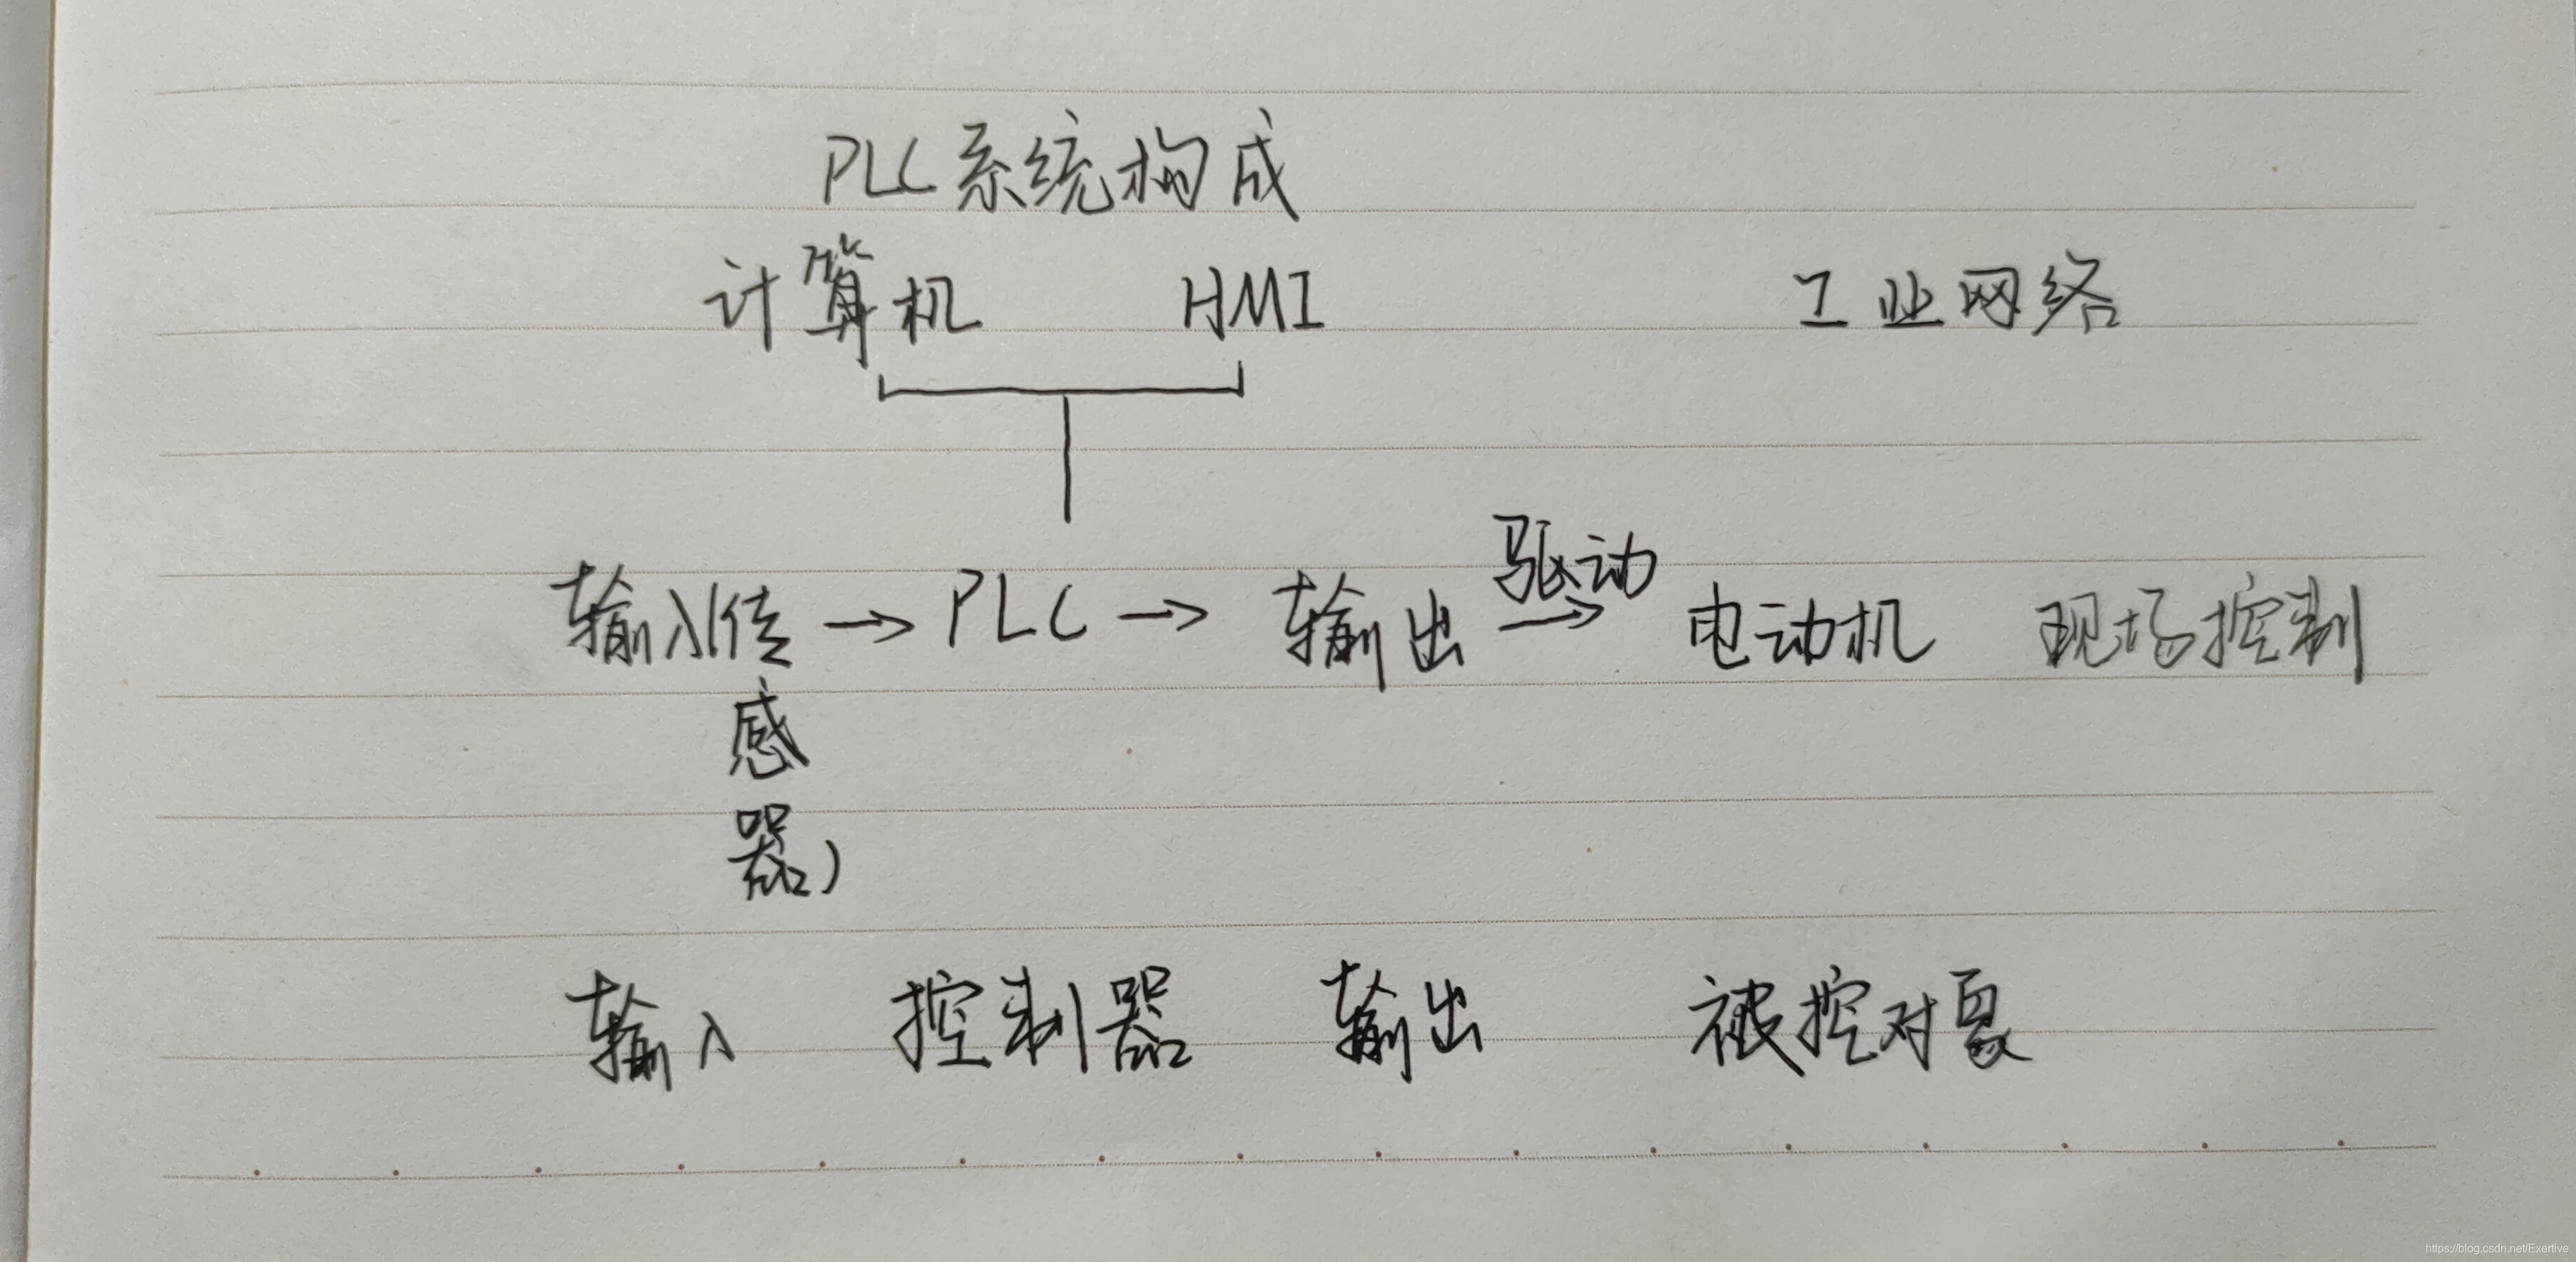 PLC系统构成
计算机 HMI 工业网络
驱动
输入(传 → PLC → 输出 → 电动机 现场控制
感
器)
输入 控制器 输出 被控对象
https://blog.csdn.net/Exertive